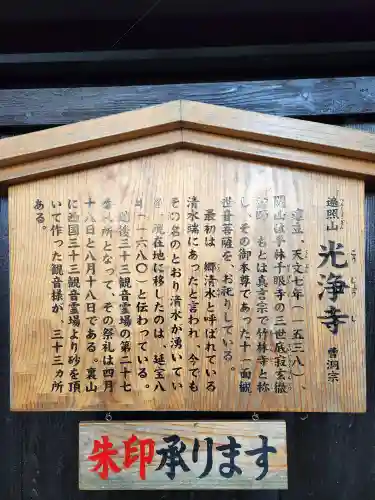 遍照山
光浄寺
曹洞宗
建立、天文七年(一五三八)、
開山は乎林千眼寺の三世底寂玄徹
もとは真言宗で竹林寺と称
し、その御本尊であった十一面観
世音菩薩を、お祀りしている。
最初は、郷清水と呼ばれている
清水端にあったと言われ、今でも
その名のとおり清水が湧いてい
る。現在地に移したのは、延宝八
年(一六八〇)と伝わっている。
越後三十三観音霊場の第二十七
番札所となって、その祭礼は四月
十八日と八月十八日である。裏山
に西国三十三観音霊場より砂を頂
いて作った観音様が、三十三ヵ所
ある。
朱印承ります